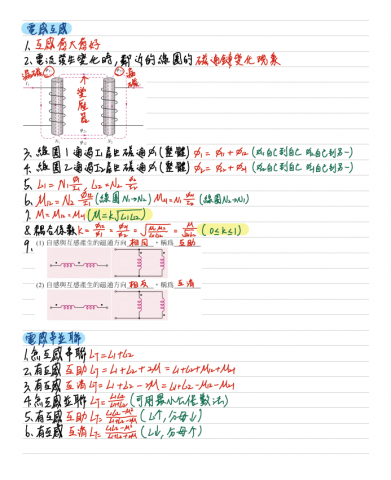 電感互感
1. 互感有大有好
2. 電流發生變化時,鄰近的線圈的磁通鏈變化現象
漏磁
漏磁
不
變
壓
器
3. 線圈1通過I₁產生磁通φ₁(整體) φ₁ = φ₁₁ + φ₁₂
4. 線圈2通過I₂產生磁通φ₂(整體) φ₂ = φ₂₂ + φ₂₁
5. L₁ = N₁ φ₁/I₁, L₂ = N₂ φ₂/I₂
6. M₁₂ = N₂ φ₁₂/I₁ (線圈N₁→N₂) M₂₁ = N₁ φ₂₁/I₂ (線圈N₂→N₁)
7. M = M₁₂ = M₂₁ (M = k√L₁L₂)
8. 耦合係數 k = φ₁₂/φ₁ = φ₂₁/φ₂ = = M/√L₁L₂ (0≤k≤1)
9. (1) 自感與互感產生的磁通方向 相同 ,稱為 互助
(2) 自感與互感產生的磁通方向 相反 ,稱為 互消
電感串並聯
1. 無互感串聯 LT = L₁+L₂
2. 有互感互助 LT = L₁+L₂+2M = L₁+L₂+M₁₂+M₂₁
3. 有互感互消 LT = L₁+L₂-2M = L₁+L₂-M₁₂-M₂₁
4. 無互感並聯 LT = L₁L₂/L₁+L₂ (可用最小公倍數法)
5. 有互感互助 LT = L₁L₂-M²/L₁+L₂-2M (L↑,分母↓)
6. 有互感互消 LT = L₁L₂-M²/L₁+L₂+2M (L↓,分母↑)